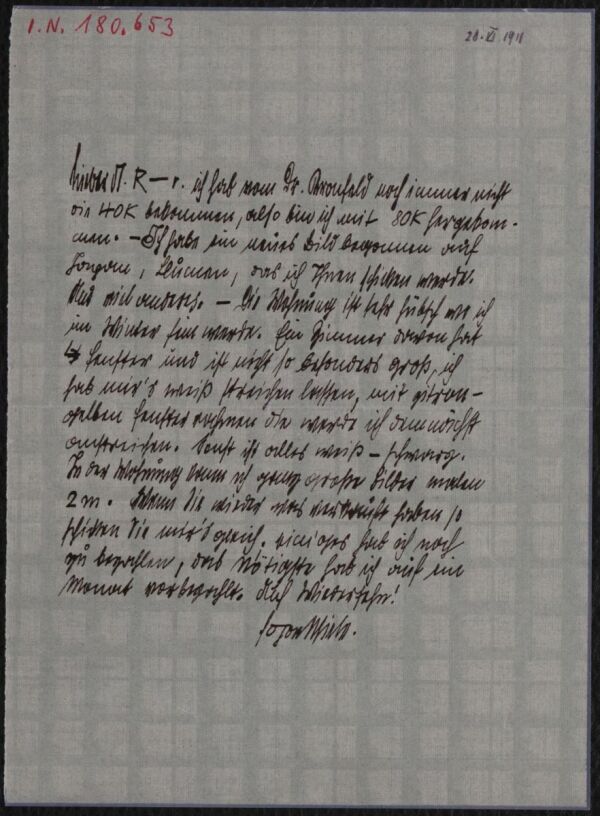 I.N. 180.653
20. XI. 1911
Lieber A. R–r. ich hab vom Dr. Kronfeld noch immer nicht
die 40K bekommen, also bin ich mit 80K hergekom-
men. – Ich habe ein neues Bild begonnen auf
, Blumen, das ich Ihnen schicken werde.
Und viel anderes. – Die Wohnung ist sehr hübsch wo ich
im Winter sein werde. Ein Zimmer davon hat
4 Fenster und ist nicht so besonders groß, ich
hab mir's weiß streichen lassen, mit zitron-
gelben Fensterrahmen die werde ich demnächst
anstreichen. Sonst ist alles weiß – schwarz.
In der Wohnung kann ich ganz große Bilder malen
2 m. Wenn Sie wieder was verkauft haben so
schicken Sie mir's gleich. einiges hab ich noch
zu bezahlen, das Nötigste hab ich auf ein
Monat vorbezahlt. Auf Wiedersehn!